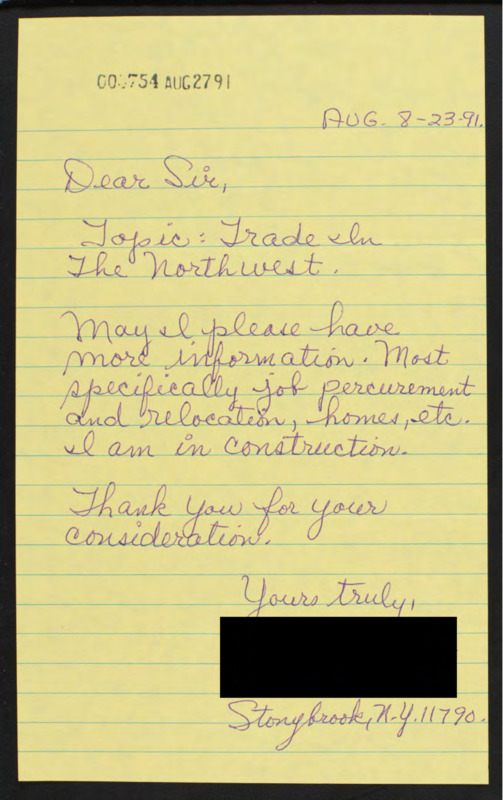 AUG2791
AUG. 8-23-91.
Dear Sir,
Topic: Trade In
The Northwest.
May I please have
more information. Most
specifically job percurement
and relocation, homes, etc.
I am in construction.
Thank you for your
consideration.
Yours truly,
Stonybrook, N.Y. 11790.